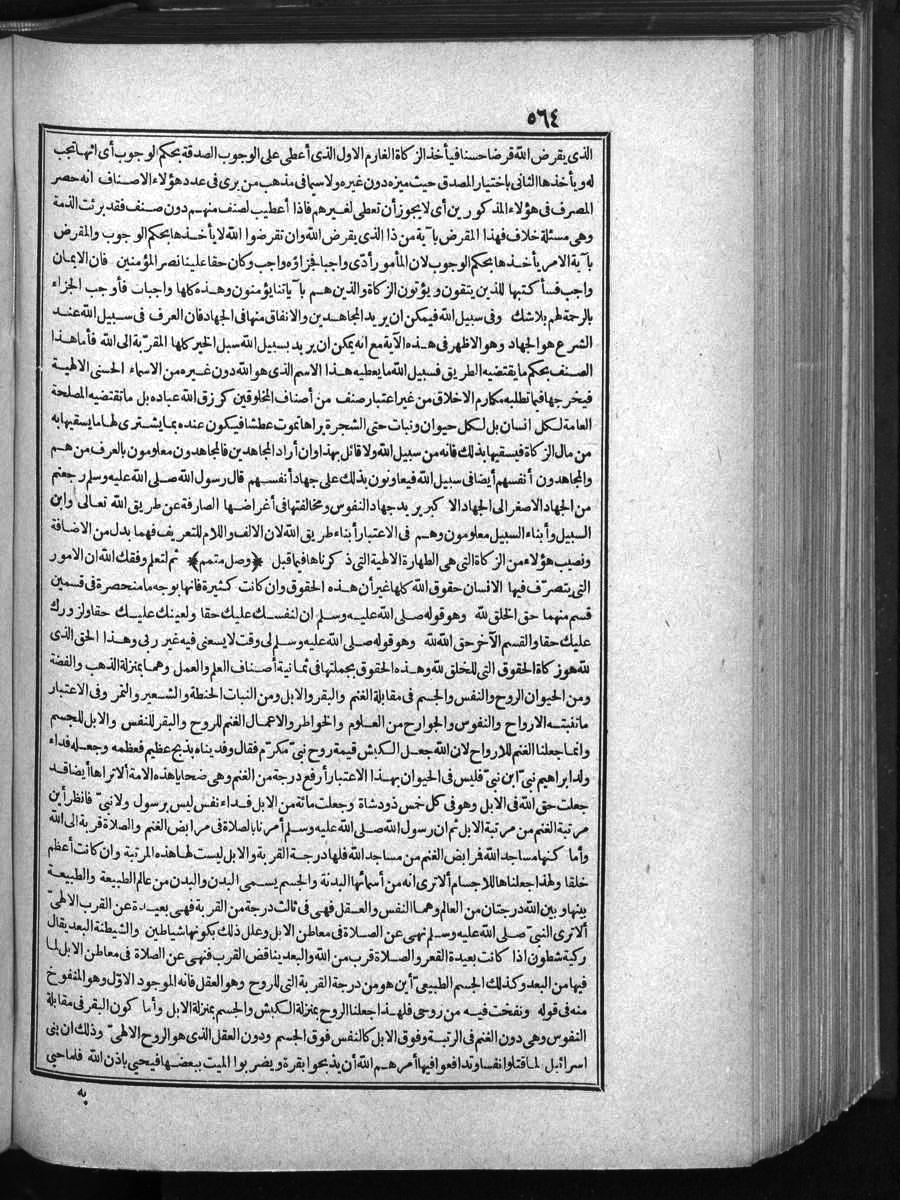 ٥٦٤
الذى يقرض الله قرضا حسنا فيأخذ الزكاة الغارم الاول الذى أعطى على الوجوب الصدقة بحكم الوجوب أى انها تجب
له ويأخذها الثانى باختيار المصدق حيث ميزه دون غيره ولاسيما فى مذهب من يرى فى عدد هؤلاء الاصناف انه حصر
المصرف فى هؤلاء المذكورين أى لا يجوز أن تعطى لغيرهم فاذا أعطيت لصنف منهم دون صنف فقد برئت الذمة
وهى مسئلة خلاف فهذا المقرض بآية من ذا الذى يقرض الله وان تقرضوا الله لا يأخذها بحكم الوجوب والمقرض
بآية الامر يأخذها بحكم الوجوب لان المأمور أدّى واجبا فجزاؤه واجب وكان حقا علينا نصر المؤمنين فان الايمان
واجب فسأكتبها للذين يتقون ويؤتون الزكاة والذين هم بآياتنا يؤمنون وهذه كلها واجبات فأوجب الجزاء
بالرحمة لهم بلاشك وفى سبيل الله فيمكن ان يريد المجاهدين والانفاق منها فى الجهاد فان العرف فى سبيل الله عند
الشرع هو الجهاد وهو الاظهر فى هذه الآية مع انه يمكن ان يريد بسبيل الله سبل الخير كلها المقرّبة الى الله فأما هذا
الصنف بحكم ما يقتضيه الطريق فسبيل الله ما يعطيه هذا الاسم الذى هو الله دون غيره من الاسماء الحسنى الالهية
فيخرجها فيما تطلبه مكارم الاخلاق من غير اعتبار صنف من أصناف المخلوقين كرزق الله عباده بل ما تقتضيه المصلحة
العامة لكل انسان بل لكل حيوان ونبات حتى الشجرة يراها تموت عطشا فيكون عنده بما يشترى لها ما يسقيها به
من مال الزكاة فيسقيها بذلك فانه من سبيل الله ولا قائل بهذا وان أراد المجاهدين فالمجاهدون معلومون بالعرف من هم
والمجاهدون أنفسهم أيضا فى سبيل الله فيعاونون بذلك على جهاد أنفسهم قال رسول الله صلى الله عليه وسلم رجعتم
من الجهاد الاصغر الى الجهاد الاكبر يريد جهاد النفوس ومخالفتها فى أغراضها الصارفة عن طريق الله تعالى وابن
السبيل وأبناء السبيل معلومون وهم فى الاعتبار أبناء طريق الله لان الالف واللام للتعريف فهما بدل من الاضافة
ونصيب هؤلاء من الزكاة التى هى الطهارة الالهية التى ذكرناها فيما قبل ﴿وصل متمم﴾ ثم لتعلم وفقك الله ان الامور
التى يتصرّف فيها الانسان حقوق الله كلها غير أن هذه الحقوق وان كانت كثيرة فانها بوجه ما منحصرة فى قسمين
قسم منهما حق الخلق لله وهو قوله صلى الله عليه وسلم ان لنفسك عليك حقا ولعينك عليك حقا ولزورك
عليك حقا والقسم الآخر حق الله لله وهو قوله صلى الله عليه وسلم لى وقت لا يسعنى فيه غير ربى وهذا الحق الذى
لله هو زكاة الحقوق التى للخلق لله وهذه الحقوق بجملتها فى ثمانية أصناف العلم والعمل وهما بمنزلة الذهب والفضة
ومن الحيوان الروح والنفس والجسم فى مقابلة الغنم والبقر والابل ومن النبات الحنطة والشعير والتمر وفى الاعتبار
ما تنبته الارواح والنفوس والجوارح من العلوم والخواطر والاعمال الغنم للروح والبقر للنفس والابل للجسم
وانما جعلنا الغنم للارواح لان الله جعل الكبش قيمة روح نبىّ مكرّم فقال وفديناه بذبح عظيم فعظمه وجعله فداء
ولد ابراهيم نبىّ ابن نبىّ فليس فى الحيوان بهذا الاعتبار أرفع درجة من الغنم وهى ضحايا هذه الامة ألا تراها أيضا قد
جعلت حق الله فى الابل وهو فى كل خمس ذود شاة وجعلت مائة من الابل فداء نفس ليس برسول ولا نبىّ فانظر أين
مرتبة الغنم من مرتبة الابل ثم ان رسول الله صلى الله عليه وسلم أمرنا بالصلاة فى مرابض الغنم والصلاة قربة الى الله
وأماكنها مساجد الله فرابض الغنم من مساجد الله فلها درجة القربة والابل ليست لها هذه المرتبة وان كانت أعظم
خلقا ولهذا جعلناها للاجسام ألا ترى انه من أسمائها البدنة والجسم يسمى البدن والبدن من عالم الطبيعة والطبيعة
بينها وبين الله درجتان من العالم وهما النفس والعقل فهى فى ثالث درجة من القربة فهى بعيدة عن القرب الالهىّ
ألا ترى النبىّ صلى الله عليه وسلم نهى عن الصلاة فى معاطن الابل وعلل ذلك بكونها شياطين والشيطنة البعد يقال
ركية شطون اذا كانت بعيدة القعر والصلاة قرب من الله والبعد يناقض القرب فنهى عن الصلاة فى معاطن الابل لما
فيها من البعد وكذلك الجسم الطبيعىّ أين هو من درجة القربة التى للروح وهو العقل فانه الموجود الاوّل وهو المنفوخ
منه فى قوله ونفخت فيه من روحى فلهذا جعلنا الروح بمنزلة الكبش والجسم بمنزلة الابل وأما كون البقر فى مقابلة
النفوس وهى دون الغنم فى الرتبة وفوق الابل كالنفس فوق الجسم ودون العقل الذى هو الروح الالهىّ وذلك ان بنى
اسرائيل لما قتلوا نفسا وتدافعوا فيها أمرهم الله أن يذبحوا بقرة ويضربوا الميت ببعضها فيحيى باذن الله فلما حيى
به